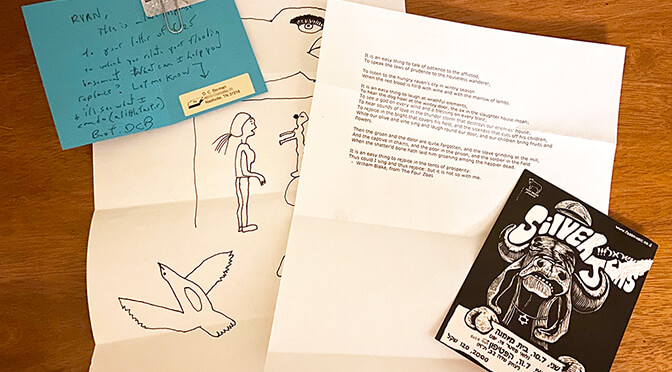 RYAN,
This is
to your letter of
in which you relate your flooding
basement. What can I help you
replace? Let me know
& i'll see what i
can do (a little late)
Best, DCB
D. C. Berman
Nashville, TN 37216
It is an easy thing to talk of patience to the afflicted,
To speak the laws of prudence to the houseless wanderer,
To listen to the hungry raven's cry in wintry season
When the red blood is fill'd with wine and with the marrow of lambs.
It is an easy thing to laugh at wrathful elements,
To hear the dog howl at the wintry door, the ox in the slaughter house moan;
To see a god on every wind and a blessing on every blast;
To hear sounds of love in the thunder storm that destroys our enemies' house;
To rejoice in the blight that covers his field, and the sickness that cuts off his children,
While our olive and vine sing and laugh round our door, and our children bring fruits and
flowers.
Then the groan and the dolor are quite forgotten, and the slave grinding at the mill,
And the captive in chains, and the poor in the prison, and the soldier in the field
When the shatter'd bone hath laid him groaning among the happier dead.
It is an easy thing to rejoice in the tents of prosperity:
Thus could I sing and thus rejoice: but it is not so with me.
- William Blake, from 'The Four Zoas'
Silver
Jews
שני, 10.7, בית
11.7, הפטיפון
20:00, 120 שקל